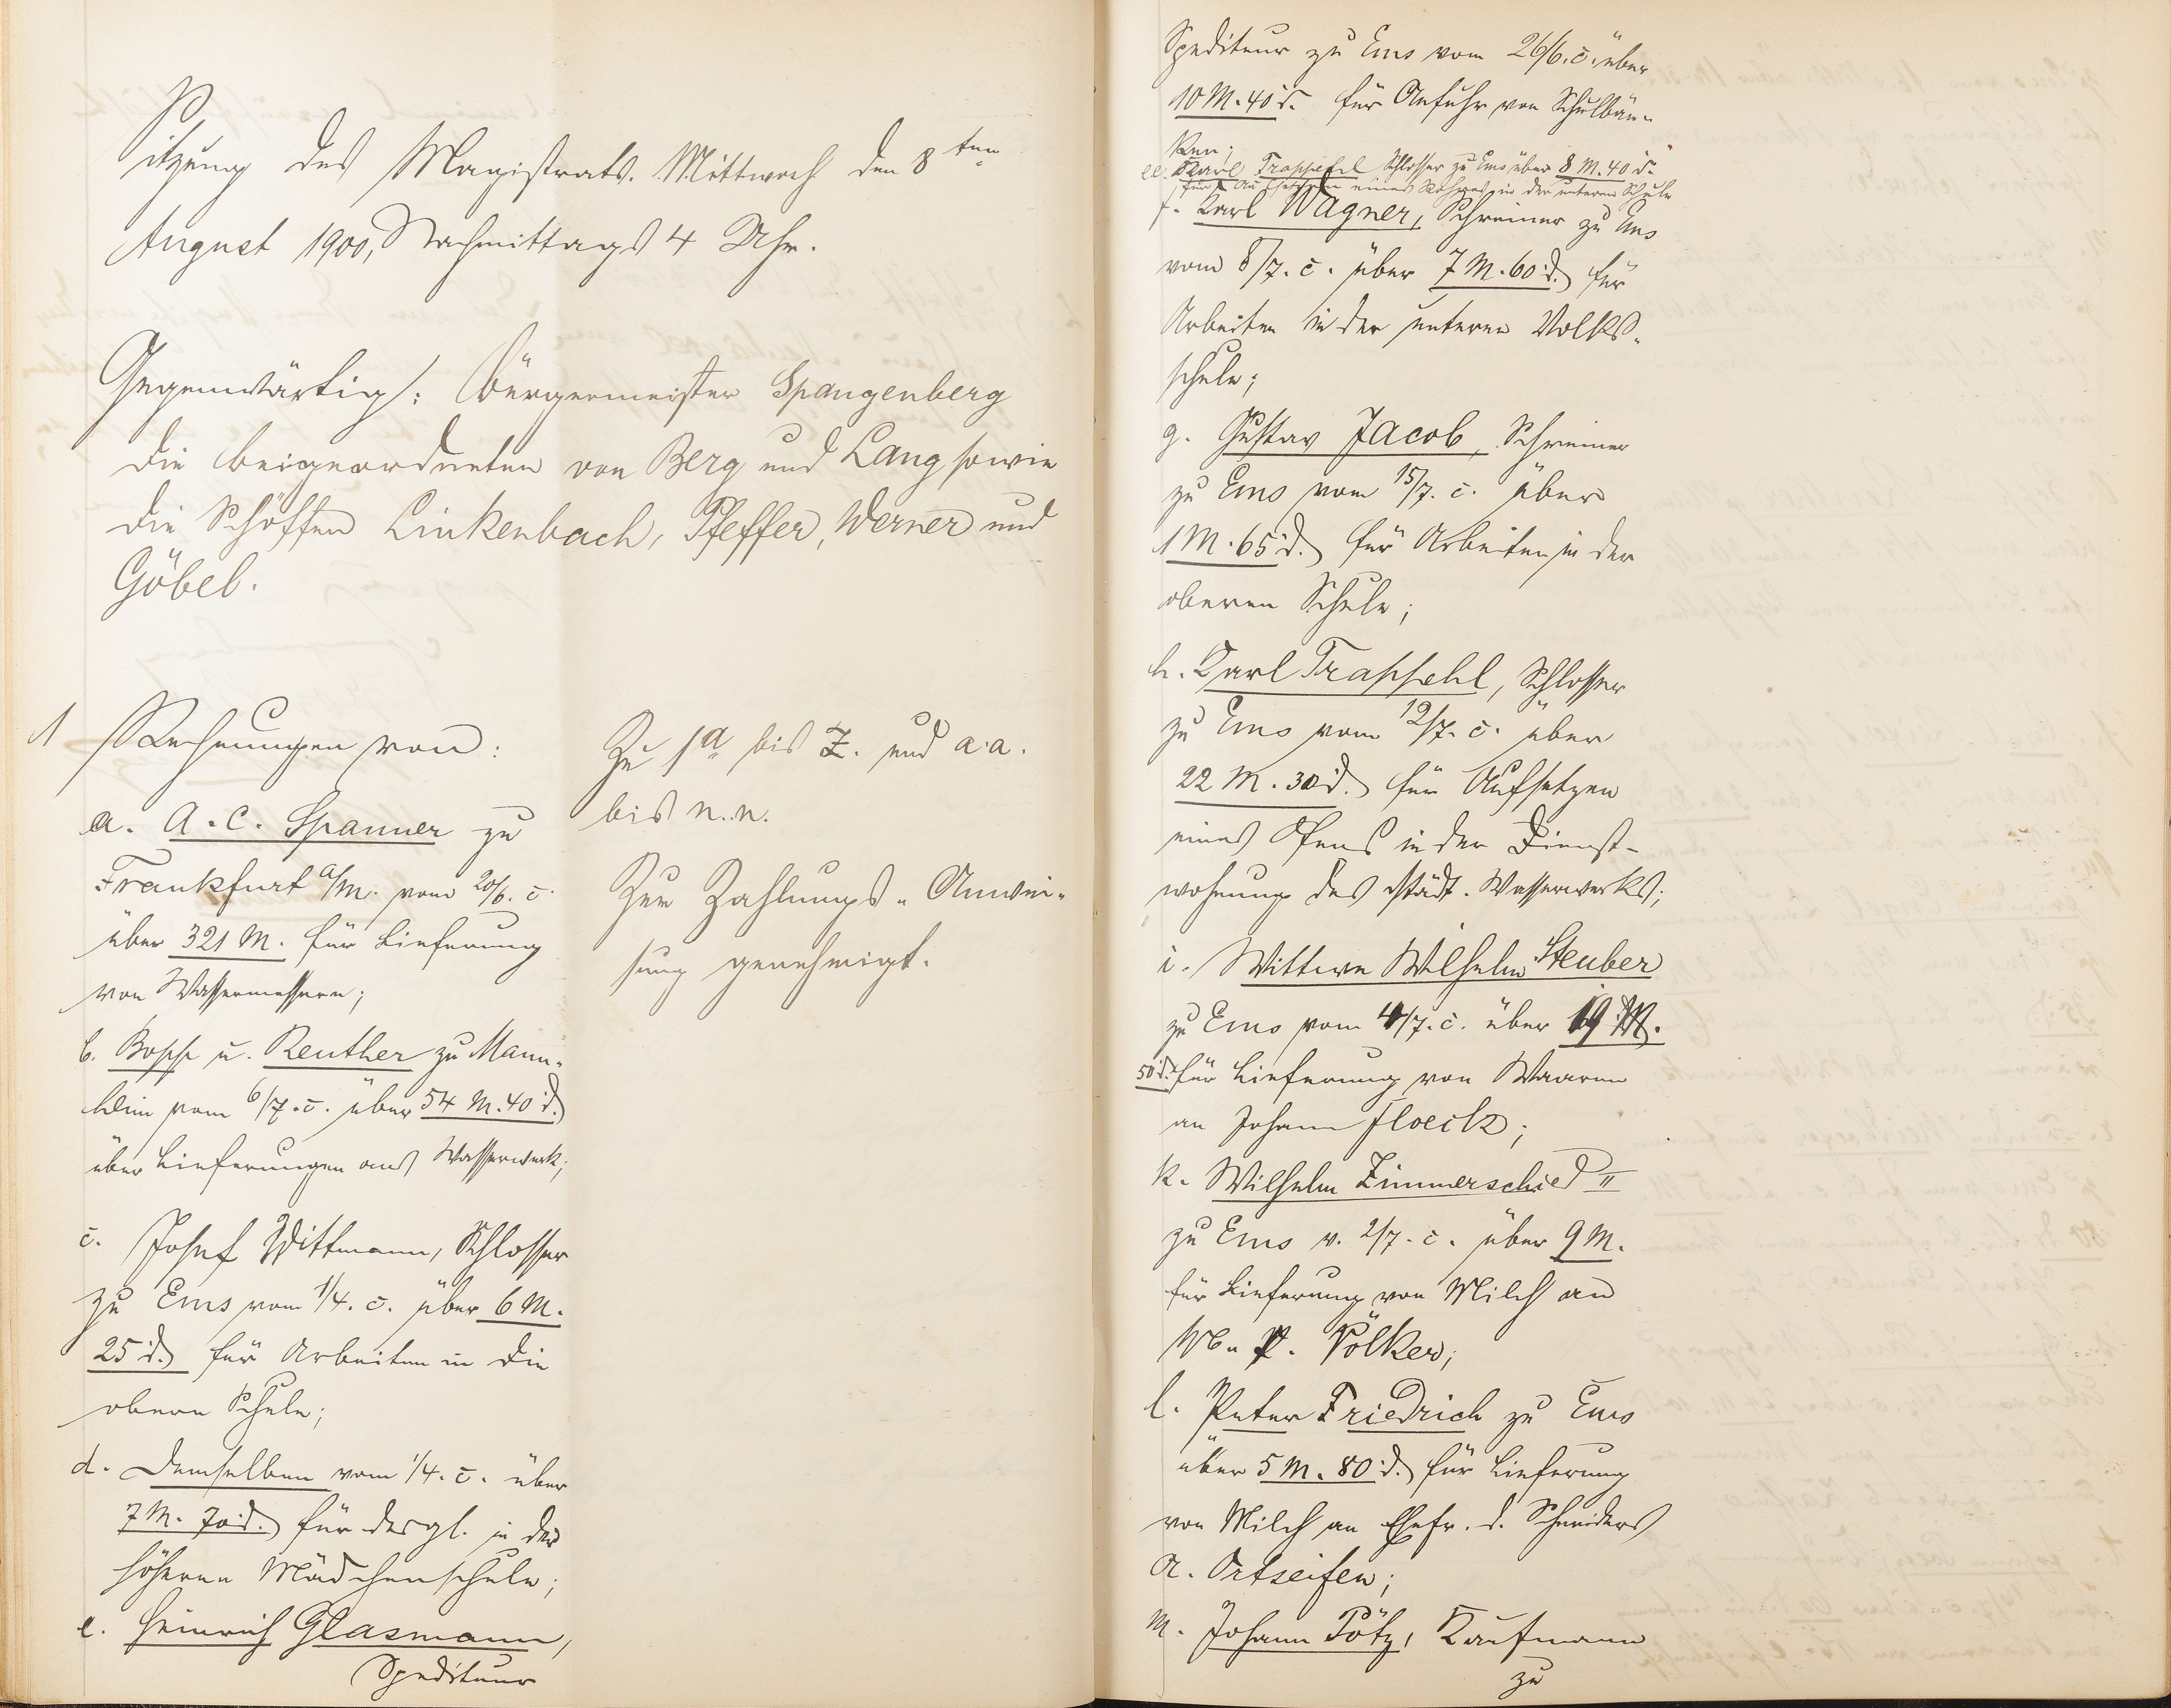 Sitzung des Magistrats. Mittwoch den 8ten
August 1900, Nachmittags 4 Uhr.
Gegenwärtig: Bürgermeister Spangenberg
die Beigeordneten von Berg und Lang sowie
die Schöffen Linkenbach, Pfeffer, Werner und
Göbel.
1 Rechnungen von:
a. A. C. Spanner zu
Frankfurt a/M. vom 20/6. c.
über 321 M. für Lieferung
von Wassermessern;
b. Bopp u. Reuther zu Mann-
heim vom 6/7. c. über 54 M. 40 d.
über Lieferungen ans Wasserwerk;
c. Josef Wittmann, Schlosser
zu Ems vom 1/4. c. über 6 M.
25 d. für Arbeiten in die
obere Schule;
d. Demselben vom 1/4. c. über
7 M. 70 d. für desgl. in der
höheren Mädchenschule;
e. Heinrich Glasmann,
Spediteur
Zu 1a bis Z. und a.a.
bis n.n.
Zur Zahlungs-Anwei-
sung genehmigt.
Spediteur zu Ems vom 26/6. c. über
10 M. 40 d. für Anfuhr von Schulbän-
ken;
ee. Karl Trappehl Schlosser zu Ems über 8 M. 40 d.
für eines Rohres in der unteren Schule
f. Karl Wagner, Schreiner zu Ems
vom 8/7. c. über 7 M. 60 d. für
Arbeiten in der unteren Volks-
schule;
g. Gustav Jacob, Schreiner
zu Ems vom 15/7. c. über
1 M. 65 d. für Arbeiten in der
oberen Schule;
h. Karl Trappehl, Schlosser
zu Ems vom 12/7. c. über
22 M. 30 d. für Aufsetzen
eines Ofens in der Dienst-
wohnung des städt. Wasserwerks;
i. Wittwe Wilhelm Steuber
zu Ems vom 4/7. c. über 19 M.
50 d. für Lieferung von Waaren
an Johann Floeck;
k. Wilhelm Zimmerschied II
zu Ems v. 2/7. c. über 9 M.
für Lieferung von Milch an
Ww. P. Völker;
l. Peter Friedrich zu Ems
über 5 M. 80 d. für Lieferung
von Milch an Ehefr. d. Schneiders
A. Ortseifen;
m. Johann Pötz, Kaufmann
zu